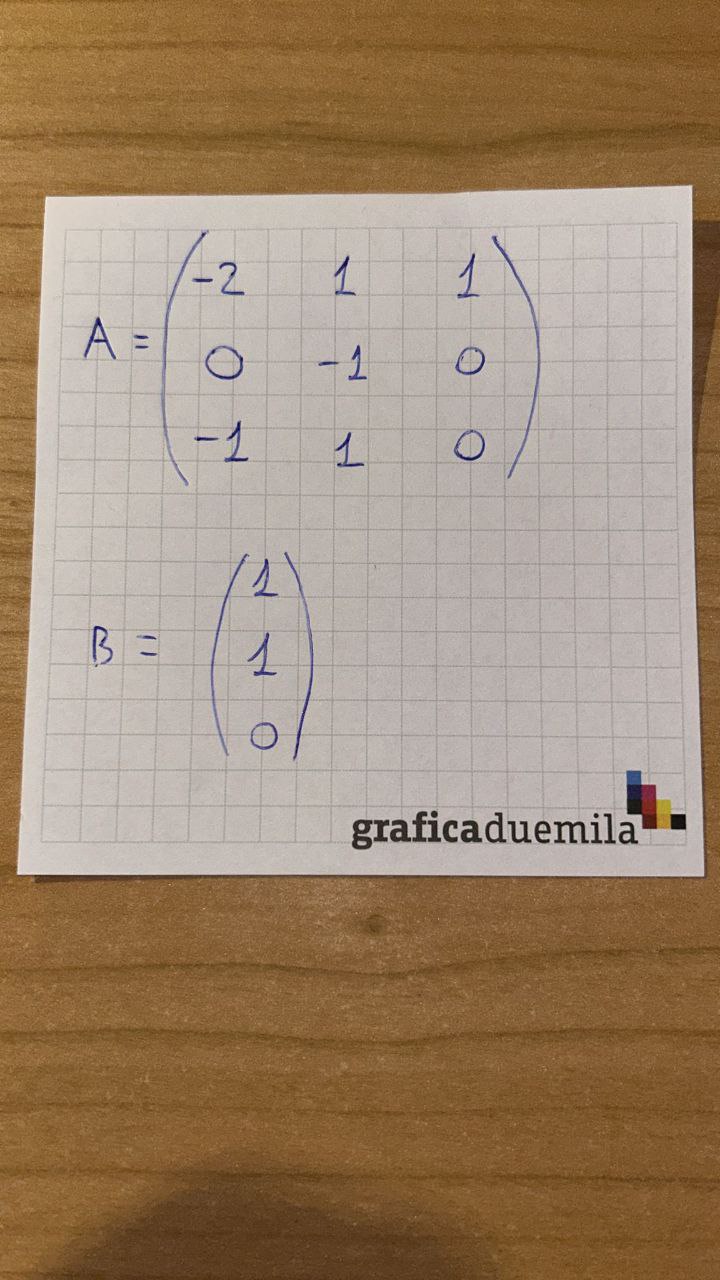 A = (-2 1 1
0 -1 0
-1 1 0)
B = (1
1
0)
graficaduemila